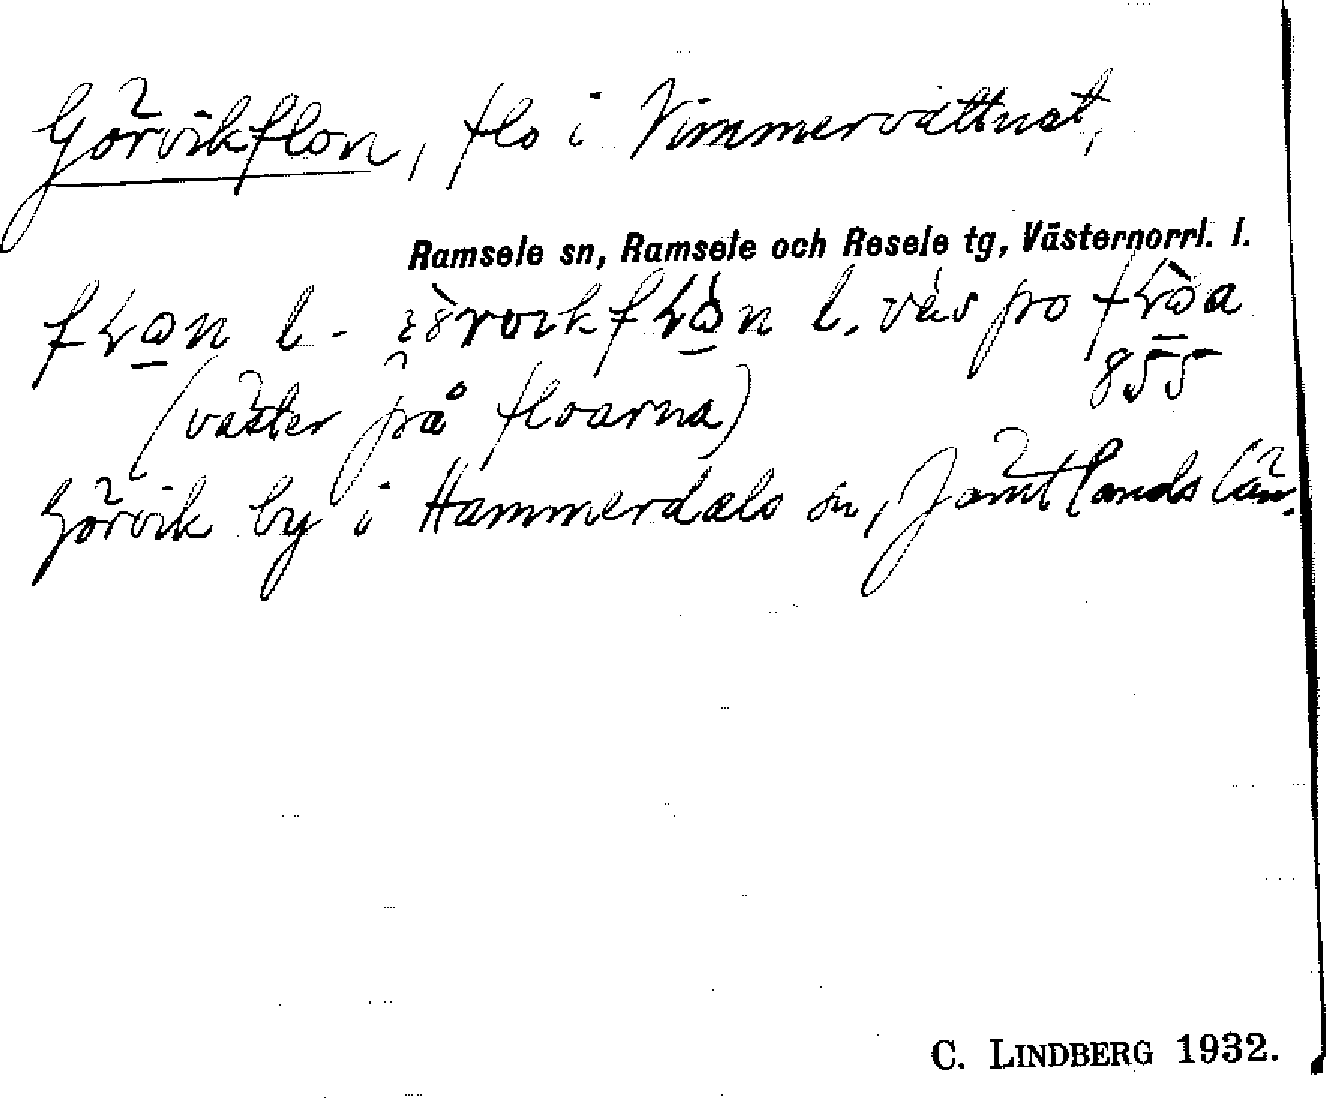 Görvikflon, flo i Vimmervattnet,
Ramsele sn, Ramsele och Resele tg, Västernorrl. l.
l. väs po
855
(väster på floarna)
Görvik by i Hammerdals sn, Jämtlands län.
C. LINDBERG 1932.